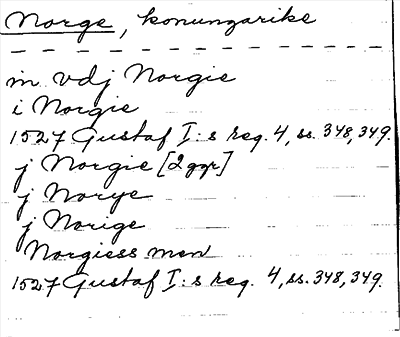 Norge, konungarike
in vdj Norgie
i Norgie
1527 Gustaf I:s reg. 4, ss. 348, 349.
j Norgie [2 ggr]
j Norye
j Norige
Norgiess men
1527 Gustaf I:s reg. 4, ss. 348, 349.